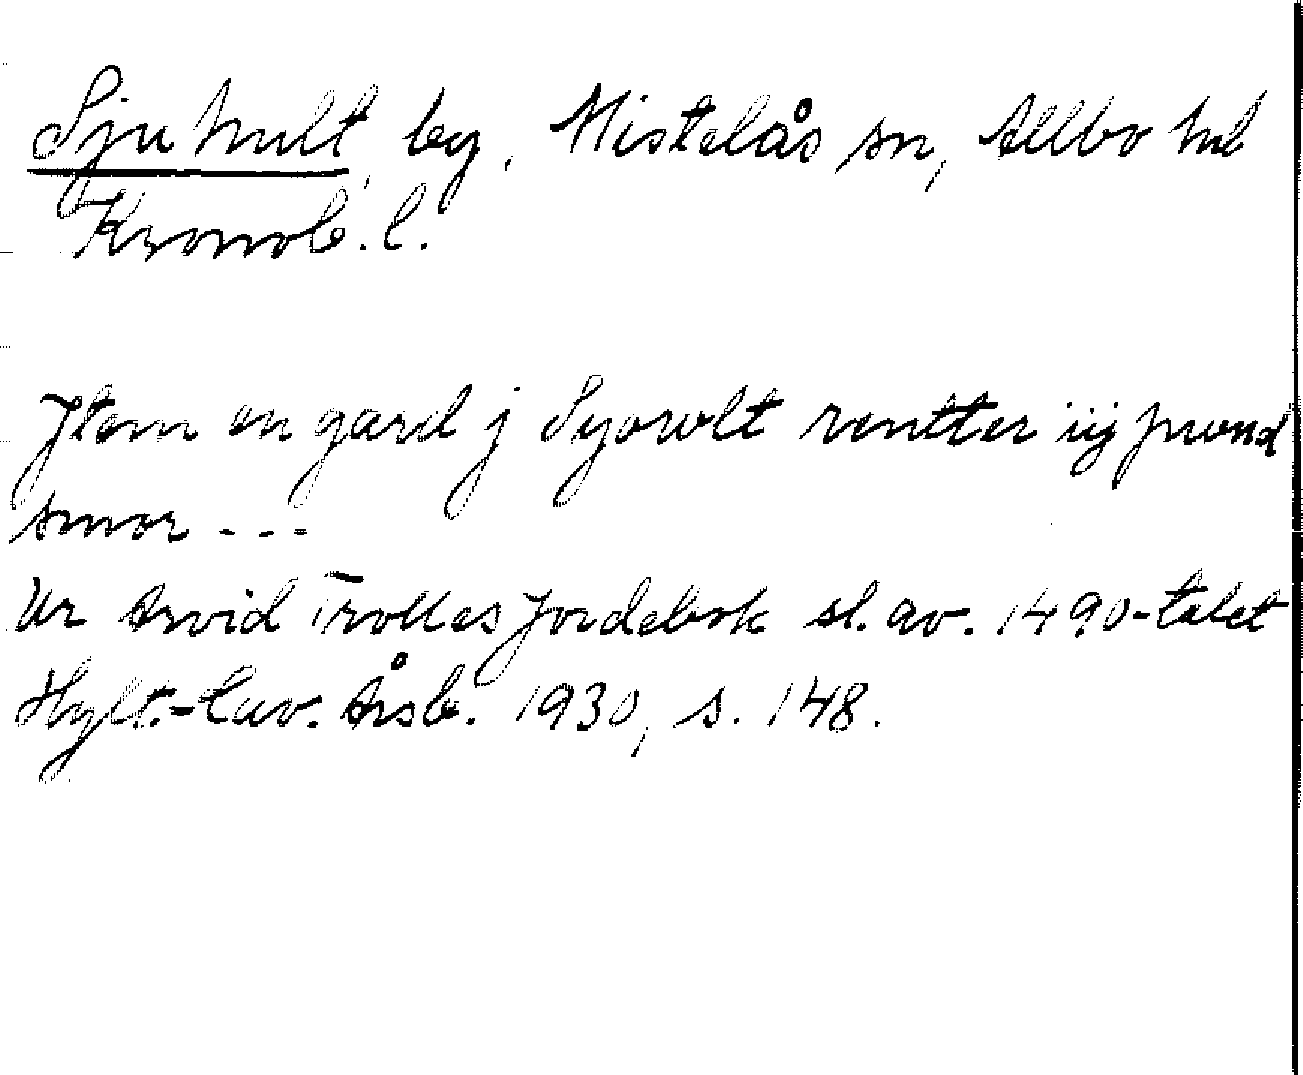 Sjuhult, by, Mistelås sn, Allbo hd
Kronob. l.
Jtem en gard j Syorolt rentter iij pund
smør - - -
Ur Arvid Trolles Jordebok sl. av. 1490-talet
Hylt.-Cav. Årsb. 1930, s. 148.